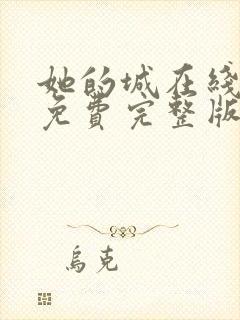 她的城在綫
免費完整版
烏克